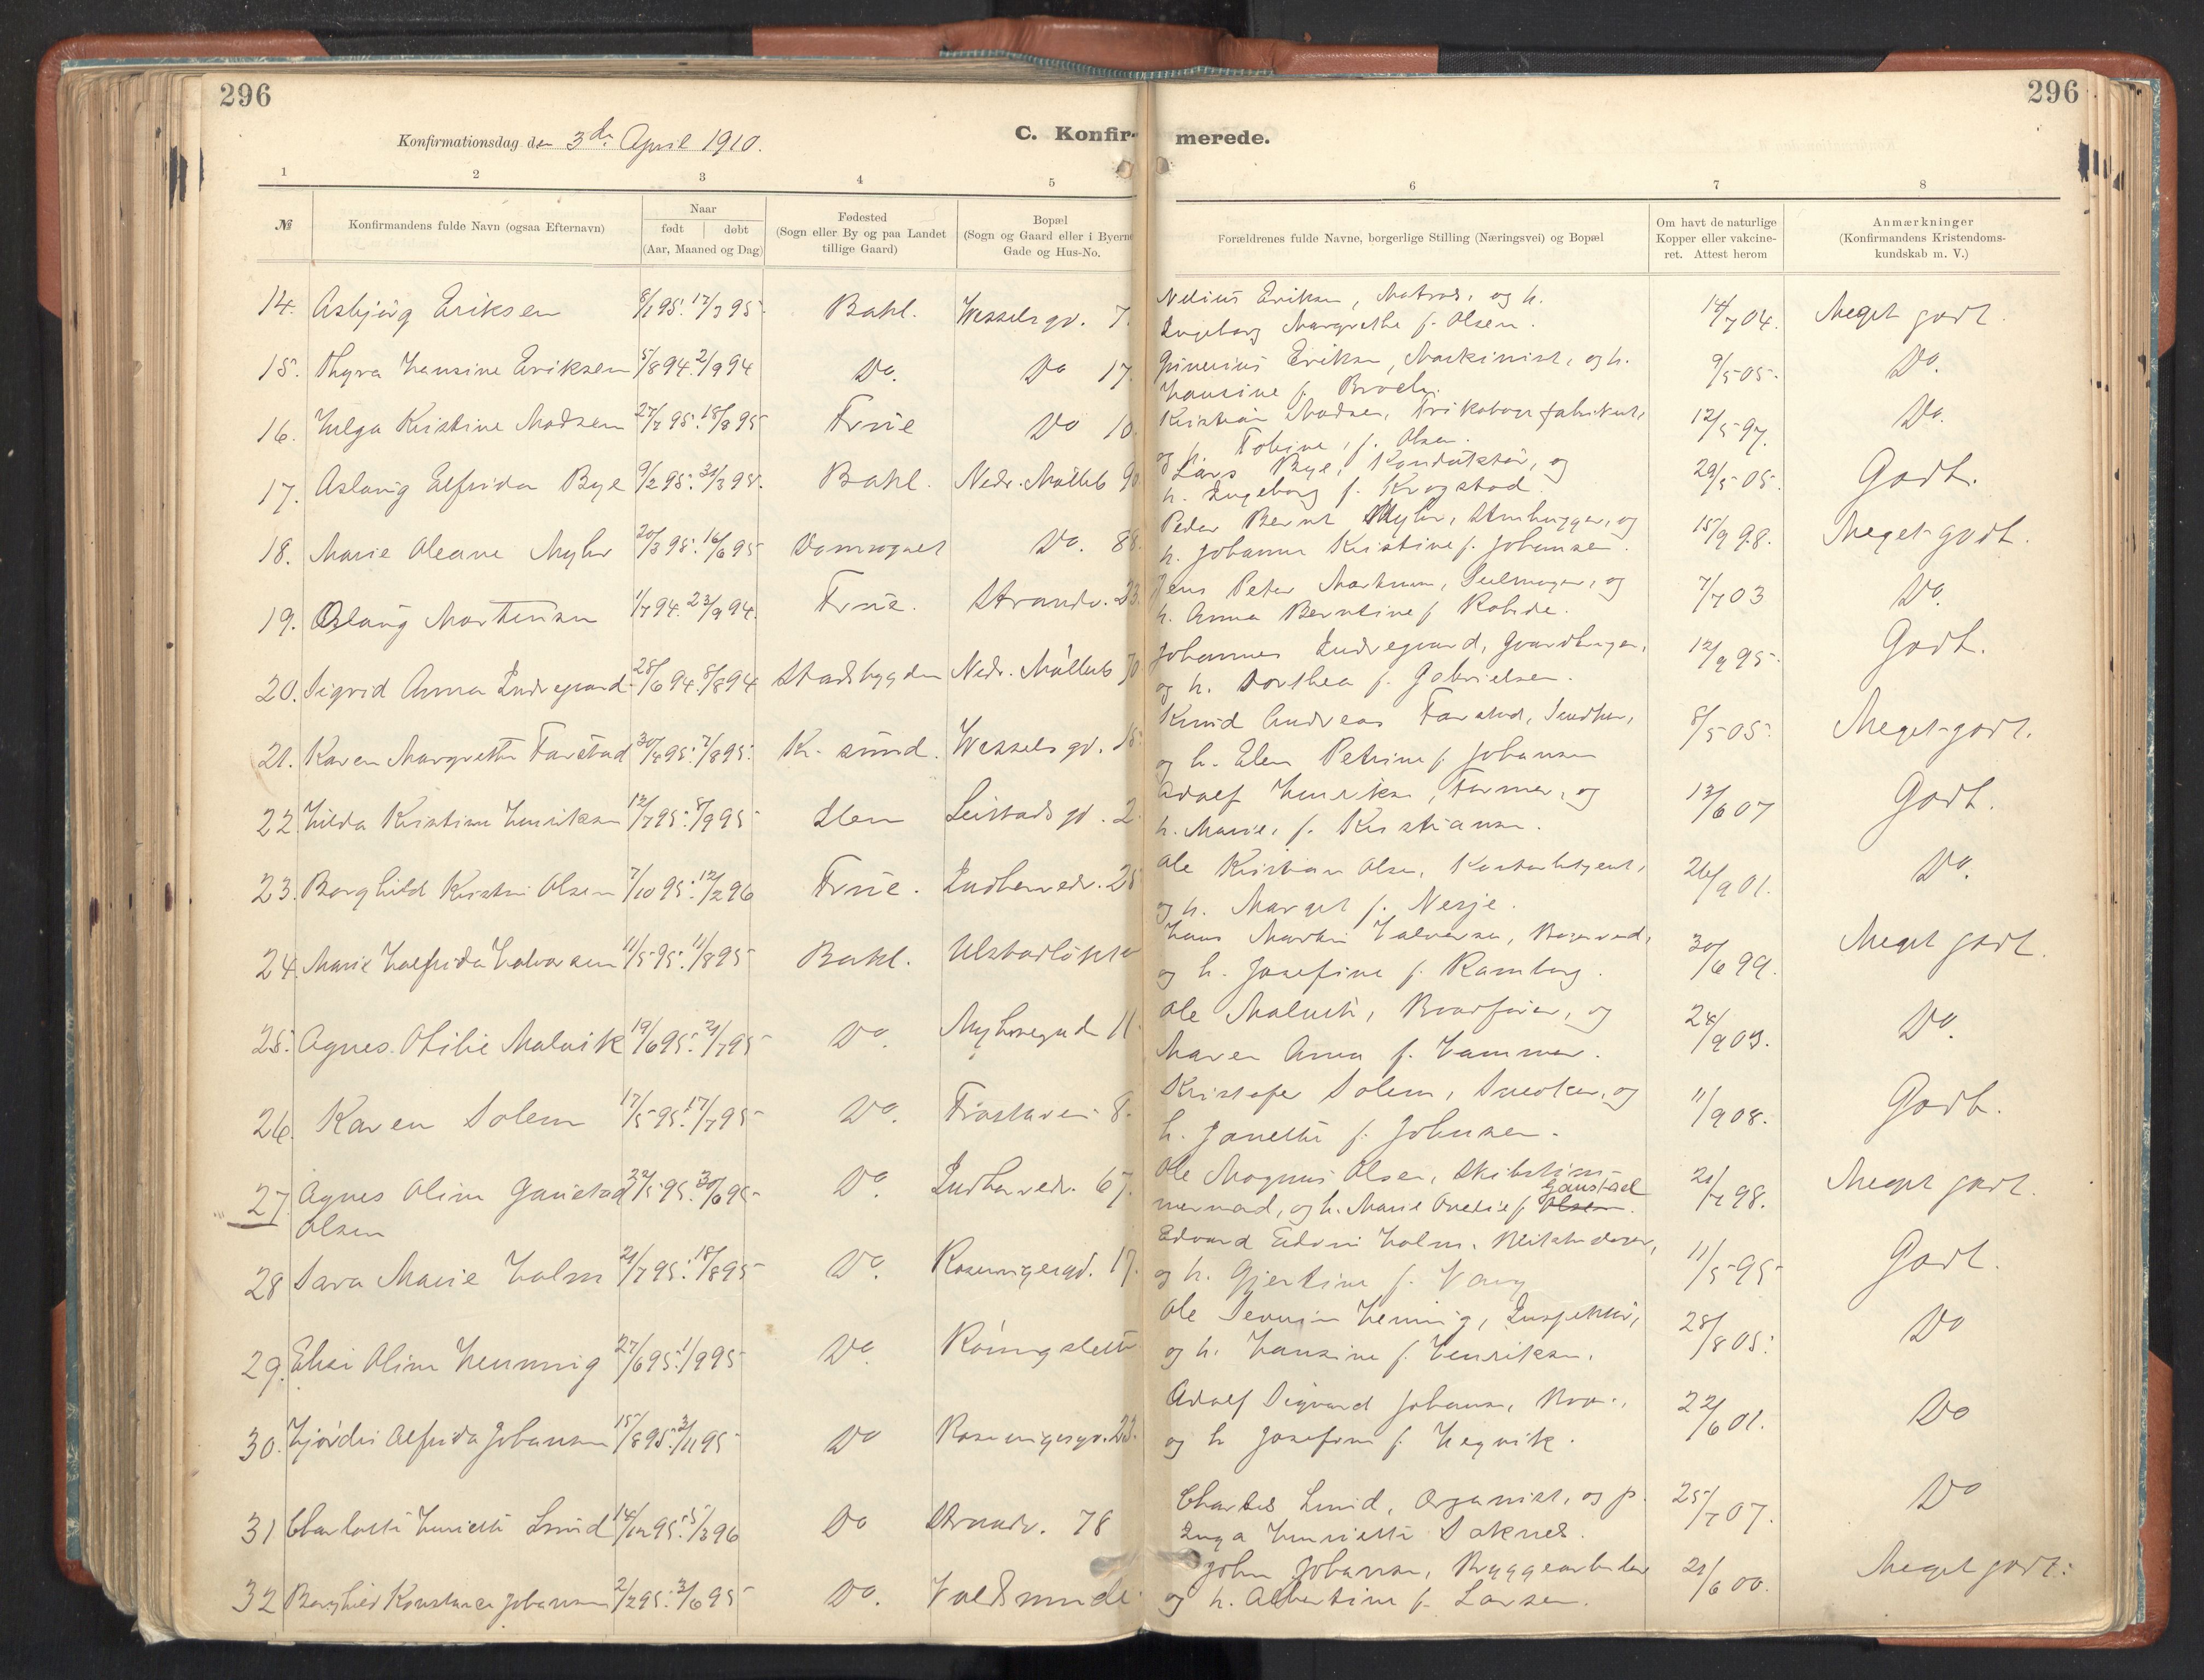 296
296
Konfirmationsdag den 3de April 1910.
C. Konfir-
merede.
1 2 3 4 5 6 7 8
№
Konfirmandens fulde Navn (ogsaa Efternavn)
Naar
født døbt
(Aar, Maaned og Dag)
Fødested
(Sogn eller By og paa Landet
tillige Gaard)
Bopæl
(Sogn og Gaard eller i Byerne
Gade og Hus-No.
Forældrenes fulde Navne, borgerlige Stilling (Næringsvei) og Bopæl
Om havt de naturlige
Kopper eller vakcine-
ret. Attest herom
Anmærkninger
(Konfirmandens Kristendoms-
kundskab m. V.)
14. Asbjörg Eriksen 8/1 95. 17/3 95. Bakl. Wesselsgd. 7. Eriksen, Matros, og h. 14/7 04. Meget godt.
Ingeborg Margrethe f. Olsen.
15. Thyra Hansine Eriksen 5/8 94. 2/9 94 Do. Do 17. Eriksen, Maskinist, og h. 9/5 05. Do.
Hansine f. Broch.
16. Helga Kristine Madsen 27/7 95. 18/8 95 Frue Do 10 Kristian Madsen, Trikotagefabrikant, 12/5 97. Do.
og h. f. Olsen.
17. Aslaug Elfrida Bye 9/2 95. 31/3 95. Bakl. Nedr. Møllebg 90 Lars Bye, Konduktør, og 29/5 05. Godt.
h. Ingeborg f. Krogstad.
18. Marie Oleane Myhr 20/3 95. 16/6 95 Domsognet Do. 88 Peder Bernt Myhr, Stenhugger, og 15/9 98. Meget godt.
h. Johanna Kristine f. Johansen.
19. Aslaug Martinsen 1/7 94. 23/9 94. Frue. Strandv. 23. Jens Peter Martinsen, Seilmager, og 7/7 03 Do.
h. Anna Berntine f. Rohde.
20. Sigrid Anna Indregaard 28/6 94. 5/8 94 Stadsbygden Nedr. Møllebg 70 Johannes Indregaard, Gaardbruger, 12/9 95. Godt.
og h. Dorthea f. Gabrielsen.
21. Karen Margrethe Farstad 30/4 95. 7/8 95. Kr.sund. Wesselsgd. 15 Knud Andreas Farstad, Snedker, 8/5 05. Meget godt.
og h. Elen Petrine f. Johansen
22 Hilda Kristine Henriksen 12/7 95. 8/9 95 Ilen Leistadsgd. 2. Adolf Henriksen, Former, og 13/6 07 Godt.
h. Marie, f. Kristiansen.
23. Borghild Kristine Olsen 7/10 95. 12/2 96 Frue. Indherredv. 25 Ole Kristian Olsen, Kontorbetjent, 26/9 01. Do.
og h. Marget f. Nesje.
24. Marie Halfrida Halvorsen 11/5 95. 11/8 95 Bakl. Ulstadløkke Hans Martin Halvorsen, 30/6 99. Meget godt.
og h. Josefine f. Ramberg.
25. Agnes Otilie Malvik 19/6 95. 21/7 95 Do. 11. Ole Malvik, Brovfører, og 24/9 03. Do.
Maren Anna f. Hammer.
26. Karen Solem 17/5 95. 17/7 95 Do. Frostavei 8. Kristofer Solem, Snedker, og 11/9 08. Godt.
h. Janette f. Johnsen.
27. Agnes Oline Ganstad 22/5 95. 30/6 95 Do. Indherredv. 67. Ole Magnus Olsen, Skibstøm- 21/7 98. Meget godt.
Olsen
mermand, og h. Marie f. Olsen. Ganstad
28 Sara Marie Holm 21/7 95. 18/8 95 Do. Rosenvingesgd. 17. Edvard Edvin Holm, og h. Gjertine f. Vang 11/5 95 Godt.
29. Elise Oline Henning 27/6 95. 1/9 95 Do Rønningsletten Ole Severin Henning, Inspektør, 28/8 05. Do
og h. Hansine f. Henriksen.
30. Hjørdis Alfrida Johansen 15/8 95. 3/11 95 Do Rosenvingesgd. 23. Adolf Sigvard Johansen, 22/6 01. Do
og h Josefine f. Hegvik.
31 Charlotte Henriette Lund 14/12 95. 15/3 96 Do Strandv. 78 Charles Lund, Organist, og h. 25/7 07. Do
Inga Henriette Saknes.
32 Borghild Konstance Johansen 2/2 95. 3/6 95 Do. Voldsminde. John Johansen, Bryggearbeider 21/6 00. Meget godt.
og h. Albertine f. Larsen.